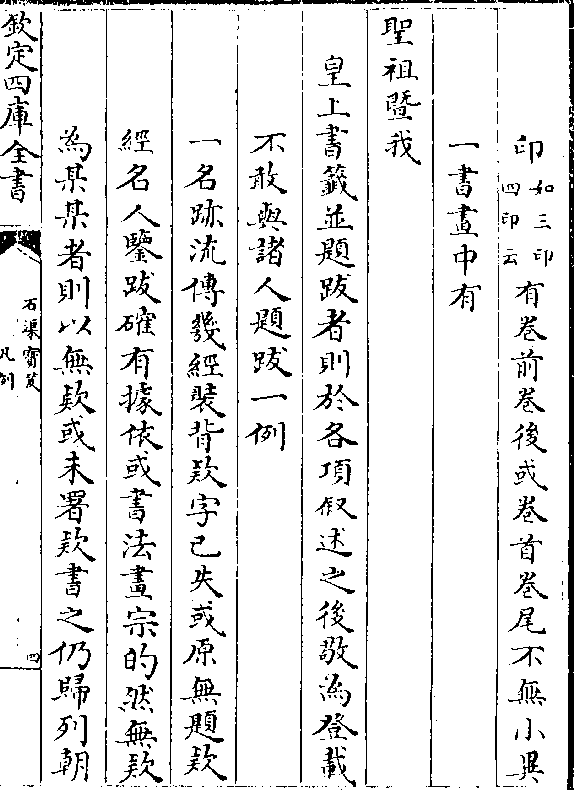 印如三印四印云有卷前卷後或卷首卷尾不無小異
一書畫中有
聖祖暨我
皇上書籖並題跋者則於各項叙述之後敬為登載
不敢與諸人題跋一例
一名跡流傳幾經裝背欵字已失或原無題欵
經名人鑒跋確有據依或書法畫宗的然無欵
為某某者則以無欵或未署欵書之仍歸列朝
欽定四庫全書
石渠寶笈
凡例
四